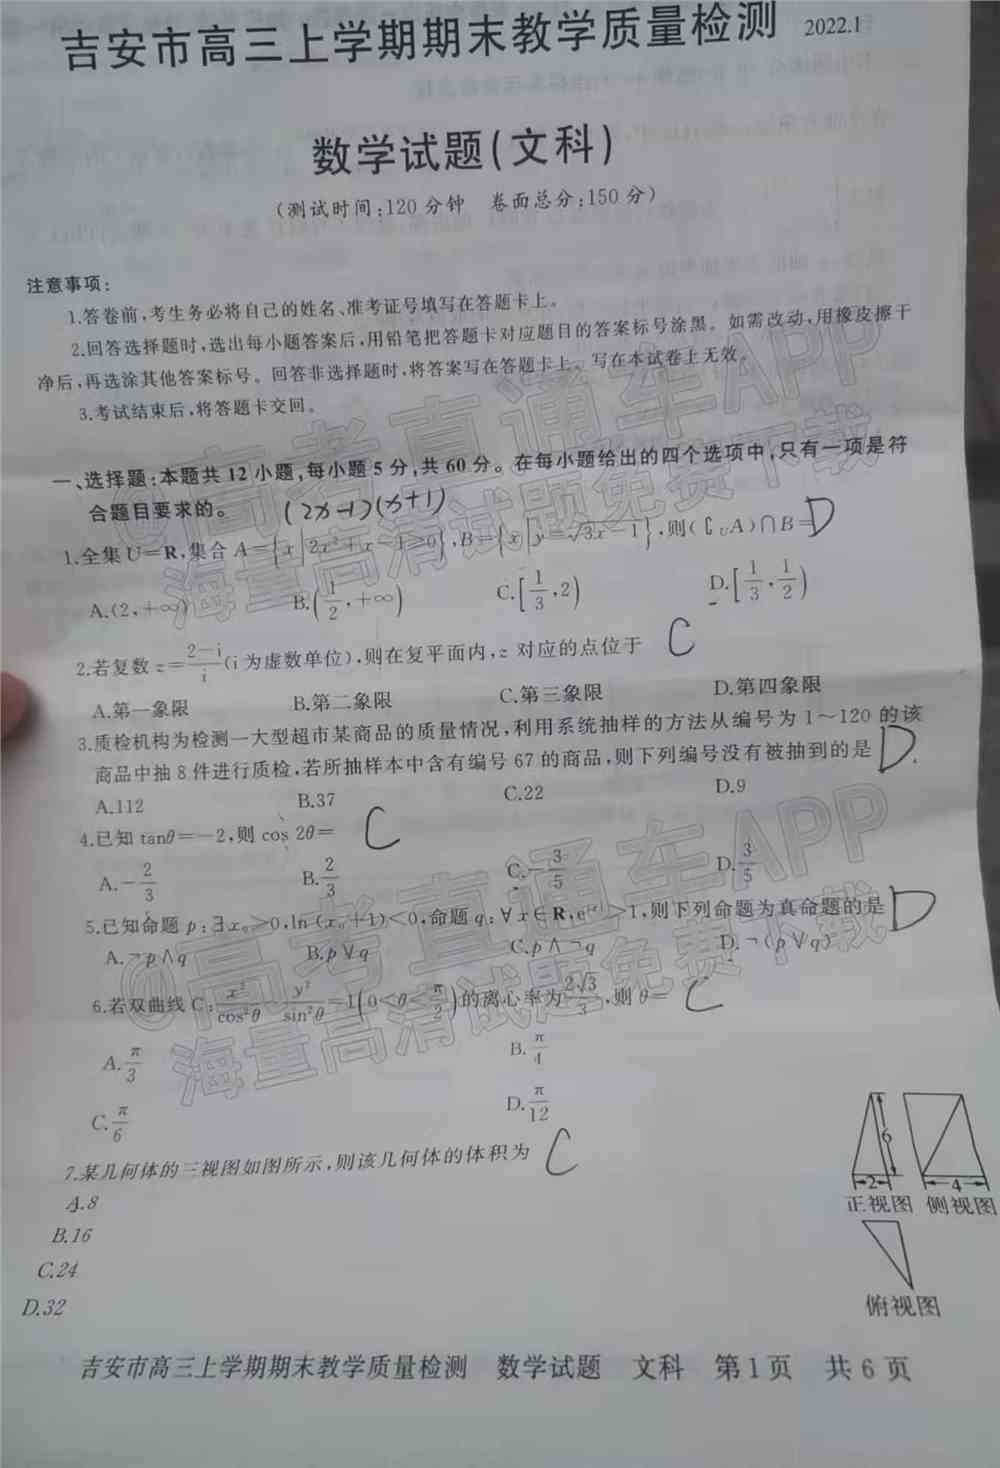 吉安市高三上学期期末教学质量检测 2022.1
数学试题(文科)
(测试时间:120分钟 卷面总分:150分)
注意事项:
1.答卷前,考生务必将自己的姓名、准考证号填写在答题卡上。
2.回答选择题时,选出每小题答案后,用铅笔把答题卡对应题目的答案标号涂黑。如需改动,用橡皮擦干
净后,再选涂其他答案标号。回答非选择题时,将答案写在答题卡上。写在本试卷上无效。
3.考试结束后,将答题卡交回。
一、选择题:本题共12小题,每小题5分,共60分。在每小题给出的四个选项中,只有一项是符
合题目要求的。 (2x-1)(x+1)
1.全集U=R,集合A={x|2x²+x-1≥0},B={x|y=√3x-1},则(∁UA)∩B= D
A.(2,+∞) B.(1/2,+∞) C.[1/3,2) D.[1/3,1/2)
2.若复数z=2-i/i(i为虚数单位),则在复平面内,z对应的点位于 C
A.第一象限 B.第二象限 C.第三象限 D.第四象限
3.质检机构为检测一大型超市某商品的质量情况,利用系统抽样的方法从编号为1~120的该
商品中抽8件进行质检,若所抽样本中含有编号67的商品,则下列编号没有被抽到的是 D.
A.112 B.37 C.22 D.9
4.已知tanθ=-2,则cos 2θ= C
A.-2/3 B.2/3 C.-3/5 D.3/5
5.已知命题p:∃x₀>0,ln(x₀+1)<0,命题q:∀x∈R,e^|x|>1,则下列命题为真命题的是 D
A.¬p∧q B.p∨q C.p∧¬q D.¬(p∨q)
6.若双曲线C:x²/cos²θ-y²/sin²θ=1(0<θ<π/2)的离心率为2√3/3,则θ= C
A.π/3 B.π/4
C.π/6 D.π/12
7.某几何体的三视图如图所示,则该几何体的体积为 C
A.8
B.16
C.24
D.32
6
2 4
正视图 侧视图
俯视图
吉安市高三上学期期末教学质量检测 数学试题 文科 第1页 共6页
@高考直通车APP
海量高清试题免费下载
@高考直通车APP
海量高清试题免费下载